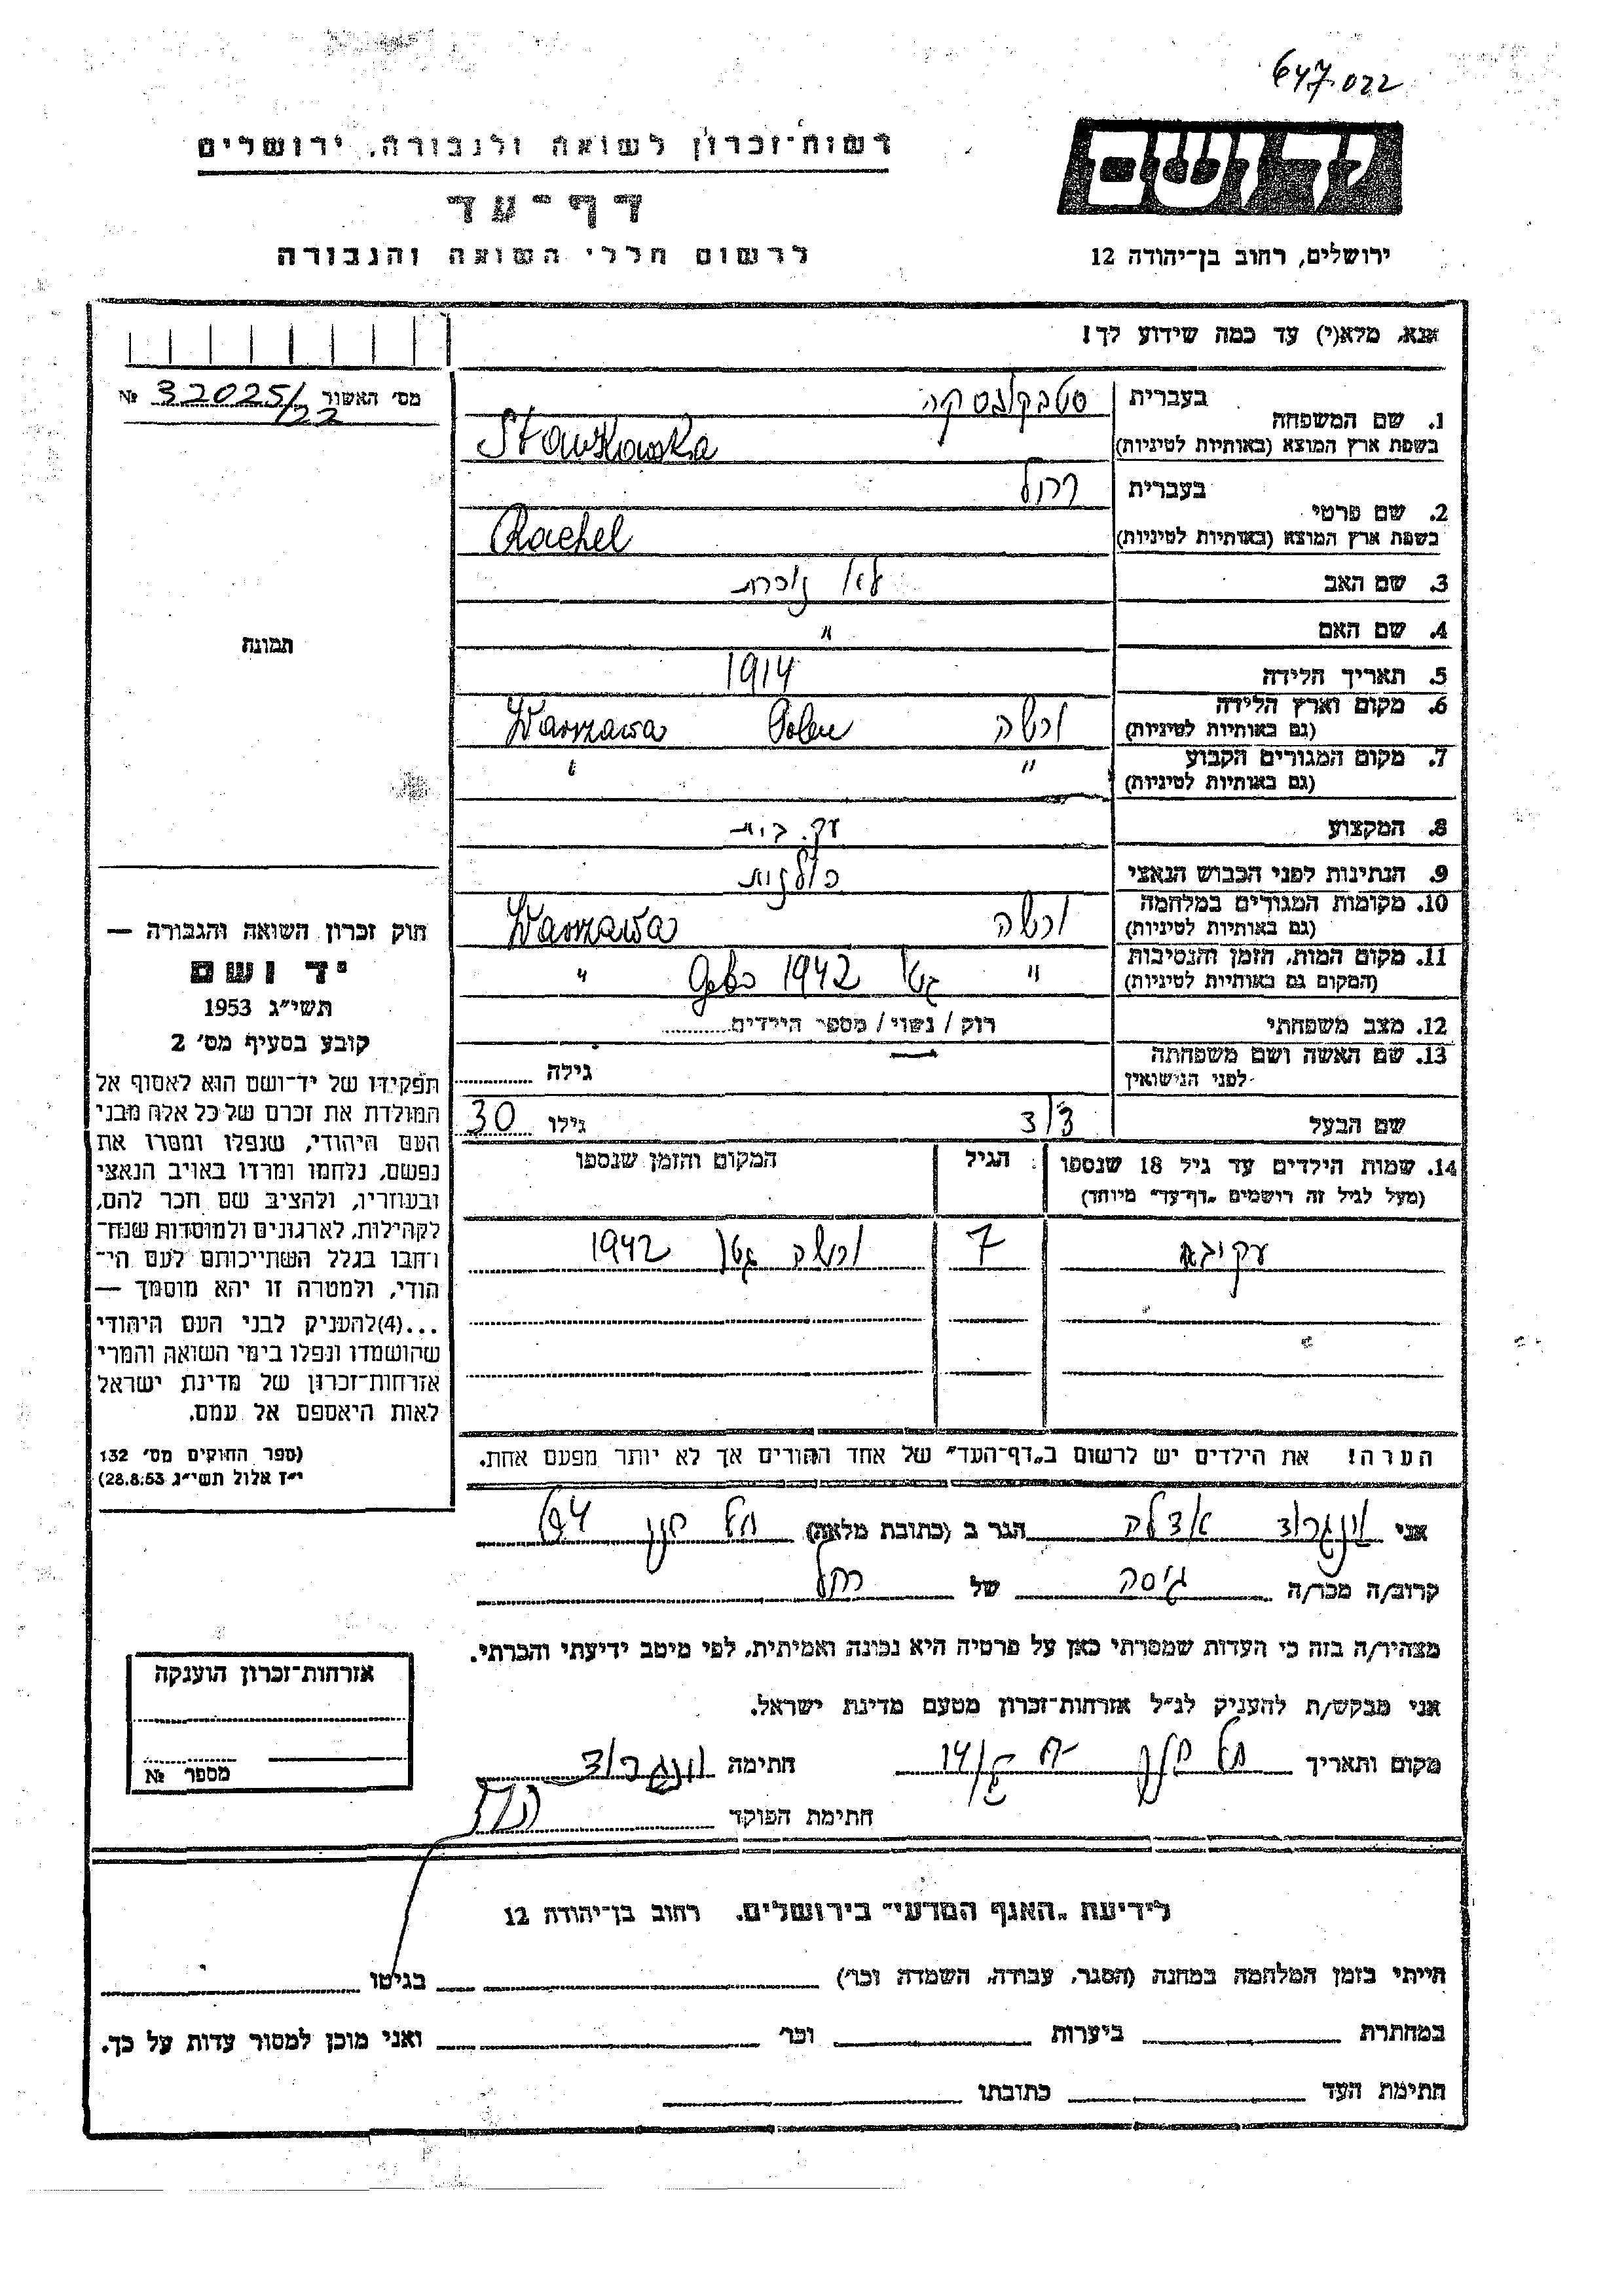 647.022
יד ושם
רשות־זכרון לשואה ולגבורה, ירושלים
דף־עד
לרשום חללי השואה והגבורה
ירושלים, רחוב בן־יהודה 12
אנא, מלא(י) עד כמה שידוע לך!
מס׳ האשור 32025/22 №
1. שם המשפחה
בעברית סטבקובסקה
בשפת ארץ המוצא (באותיות לטיניות) Stawkowska
2. שם פרטי
בעברית רחל
בשפת ארץ המוצא (באותיות לטיניות) Rachel
3. שם האב לא זוכרת
4. שם האם "
5. תאריך הלידה 1914
6. מקום וארץ הלידה (גם באותיות לטיניות) ורשה Polen Warszawa
7. מקום המגורים הקבוע (גם באותיות לטיניות) " "
8. המקצוע עק. בית
9. הנתינות לפני הכבוש הנאצי פולנית
10. מקומות המגורים במלחמה (גם באותיות לטיניות) ורשה Warszawa
11. מקום המות, הזמן והנסיבות (המקום גם באותיות לטיניות) " גטו 1942 "
12. מצב משפחתי רוק / נשוי / מספר הילדים
13. שם האשה ושם משפחתה לפני הנישואין גילה
שם הבעל גילו 30
14. שמות הילדים עד גיל 18 שנספו
(מעל לגיל זה רושמים „דף־עד״ מיוחד)
הגיל
המקום והזמן שנספו
עקיבא 7 ורשה גטו 1942
הערה! את הילדים יש לרשום ב„דף־העד״ של אחד ההורים אך לא יותר מפעם אחת.
תמונה
חוק זכרון השואה והגבורה —
יד ושם
תשי״ג 1953
קובע בסעיף מס׳ 2
תפקידו של יד־ושם הוא לאסוף אל
המולדת את זכרם של כל אלה מבני
העם היהודי, שנפלו ומסרו את
נפשם, נלחמו ומרדו באויב הנאצי
ובעוזריו, ולהציב שם וזכר להם,
לקהילות, לארגונים ולמוסדות שנח־
רבו בגלל השתייכותם לעם הי־
הודי, ולמטרה זו יהא מוסמך —
...(4)להעניק לבני העם היהודי
שהושמדו ונפלו בימי השואה והמרי
אזרחות־זכרון של מדינת ישראל
לאות היאספם אל עמם.
(ספר החוקים מס׳ 132
י״ז אלול תשי״ג 28.8.53)
אני וינגרוד אצלה הגר ב (כתובת מלאה)
קרוב/ה מכר/ה גיסה של רחל
מצהיר/ה בזה כי העדות שמסרתי כאן על פרטיה היא נכונה ואמיתית, לפי מיטב ידיעתי והכרתי.
אני מבקש/ת להעניק לנ״ל אזרחות־זכרון מטעם מדינת ישראל.
מקום ותאריך חתימה וינגרוד
חתימת הפוקד
אזרחות־זכרון הוענקה
מספר №
לידיעת „האגף המדעי״ בירושלים, רחוב בן־יהודה 12
הייתי בזמן המלחמה במחנה (הסגר, עבודה, השמדה וכר׳) בגיטו
במחתרת ביערות וכר׳ ואני מוכן למסור עדות על כך.
חתימת העד כתובתו